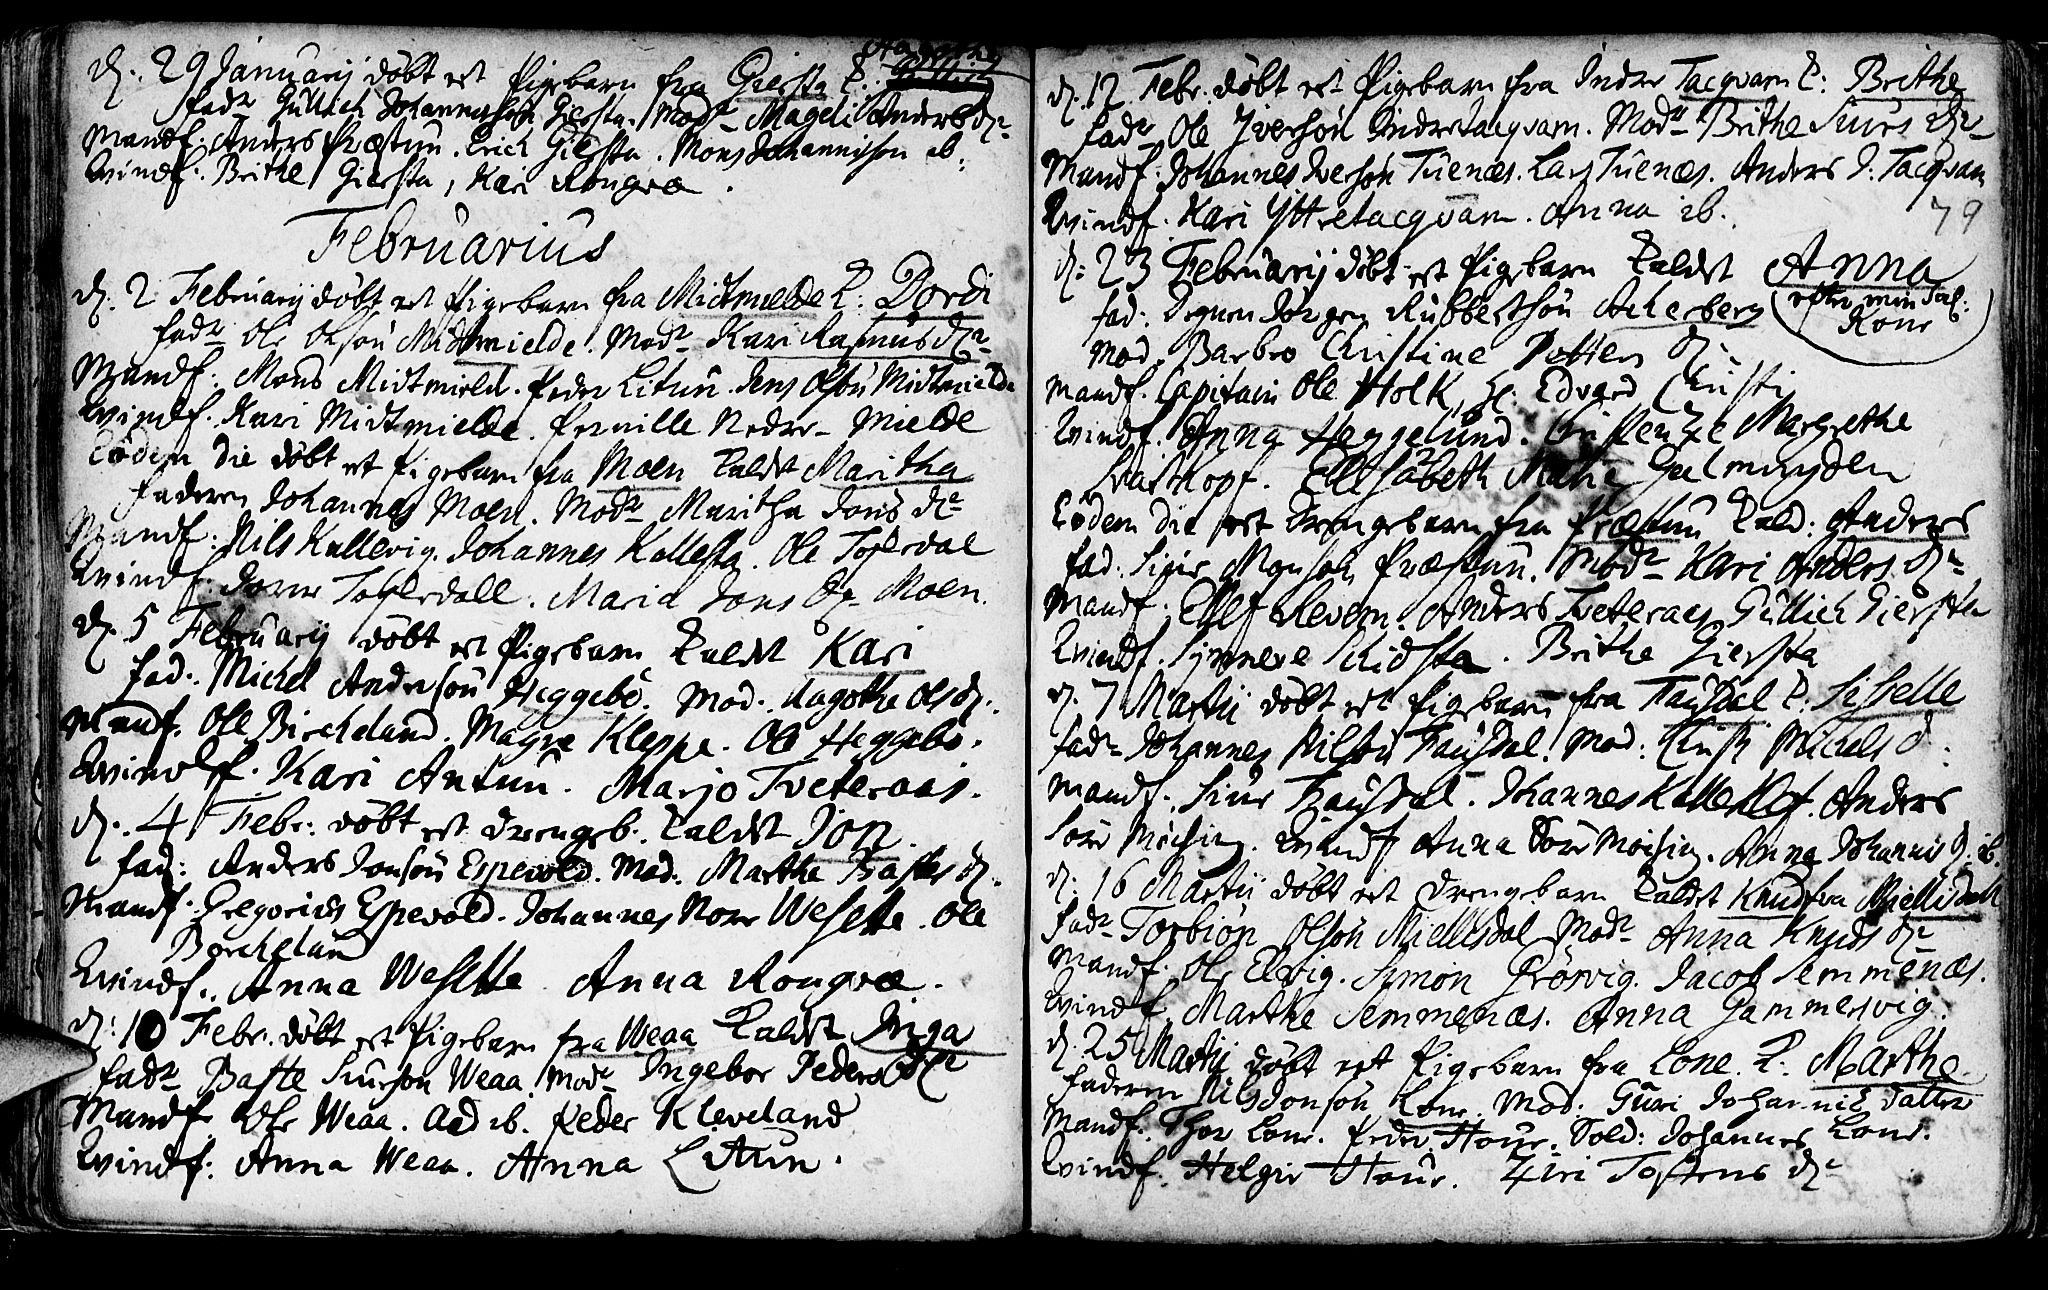 d. 29 Januarij döbt et Pigebarn fra Giersta k:
fadr Gullich Johannesson Giersta. Modr Mageli Anders dr
Mandf. Anders Præstun. Erich Giersta. Mons Johannison ib.
Kvindf. Brithe Giersta, Kari Rongve.
Februarius
d. 2 Februarij döbt et Pigebarn fra Midtmielde k: Dordi
fadr Ole Olsön Midtmielde. Modr Kari Rasmus dr
Mandf. Mons Midtmield. Peder Litun. Jens Olson Midtmielde
Kvindf. Kari Midtmielde. Pernille Nedre Mielde
Eodem die döbt et Pigebarn fra Moen kaldet Maritha
faderen Johannes Moen. Modr Maritha Jons dr
Mandf. Nils Kallevig. Johannes Kallesta. Ole Toskedal
Kvindf. Maria Jons dr Moen.
d. 5 Februarij döbt et Pigebarn kaldet Kari
fad. Michel Andersön Heggebö. Mod. Ragothe Ols d.
Mandf. Ole Birckeland. Magne Kleppe. Ole Heggebö.
Kvindf. Kari Antun. Marjo Tveteraas.
d. 4 Febr. döbt et drengeb. kaldet Jon.
fad: Anders Jonsön Espevold. Mod. Martha Bastes d.
Mandf. Gregorius Espevold. Johannes Norr Wesette. Ole
Borckeland
Kvindf. Anna Wesette Anna Rongve.
d. 10 Febr. döbt et Pigebarn fra Weaa kaldet Inga
fadr Baste Siurson Weaa. Modr Ingebor Peders dr
Mandf Ole Weaa. Aad ib. Peder Kleveland
Kvindf. Anna Weaa. Anna Litun.
d. 12 Febr. döbt et Pigebarn fra Indre Tacqvam k: Brithe
fadr Ole Iversön Indretacqvam. Modr Brithe Siurs dr
Mandf. Johannes Iversön Tuenæs. Lars Tuenæs. Anders I. Tacqvam
Kvindf. Kari Yttretacqvam. Anna ib.
79
d. 23 Februarij döbt et Pigebarn kaldet Anna
(efter min Sal:
Kone)
fad. Degnen Jörgen Rubbertsön Ackerberg
Mod. Barbro Christine Petters d.
Mandf. Capitain Ole Holk, Hr. Edvard Christi
Kvindf. Anna Heggelund. Margrethe
Elisabeth Marie Gelmuyden
Eodem die et Drengebarn fra Præstun kald: Anders
fad. Siur Monsön Præstun. Modr Kari Anders dr
Mandf. Ellef Reven. Anders Tveteraas Gullich Giersta
Kvindf. Synneve Skidsta. Brithe Giersta
d. 7 Martii döbt et Pigebarn fra Fausdal k. Sisselle
fadr Johannes Nilson Fausdal. Mod: Michels d.
Mandf. Siur Fausdal. Johannes Kalleklef. Anders
Sore Moesing. Kvindf Anna Sore Moesing. Anna Johannis d. ib.
d. 16 Martii döbt et drengebarn kaldet Knud fra Mielldal
fadr Torbiön Olsön Miellesdal Modr Anna Knuds dr
Mandf. Ole Elvig. Symon Grösvig. Jacob Semmenæs.
Kvindf. Marthe Semmenæs. Anna Gammersvig.
d. 25 Martii döbt et Pigebarn fra Lone. k. Marthe.
faderen Nils Jonsön Lone. Mod: Guri Johannis datter
Mandf. Thor Lone. Peder Houe. Sold: Johannes Lone.
Kvindf. Helgie Houe. Ziri Tostens dr